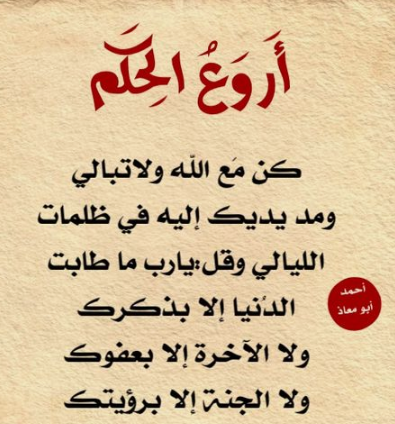 أَروَعُ الحِكَم
كن مَع اللّه ولاتبالي
ومد يديك إليه في ظلمات
الليالي وقل:يارب ما طابت
الدُنيا إلا بذكرك
ولا الآخرة إلا بعفوك
ولا الجنة إلا برؤيتك
أحمد
أبو معاذ